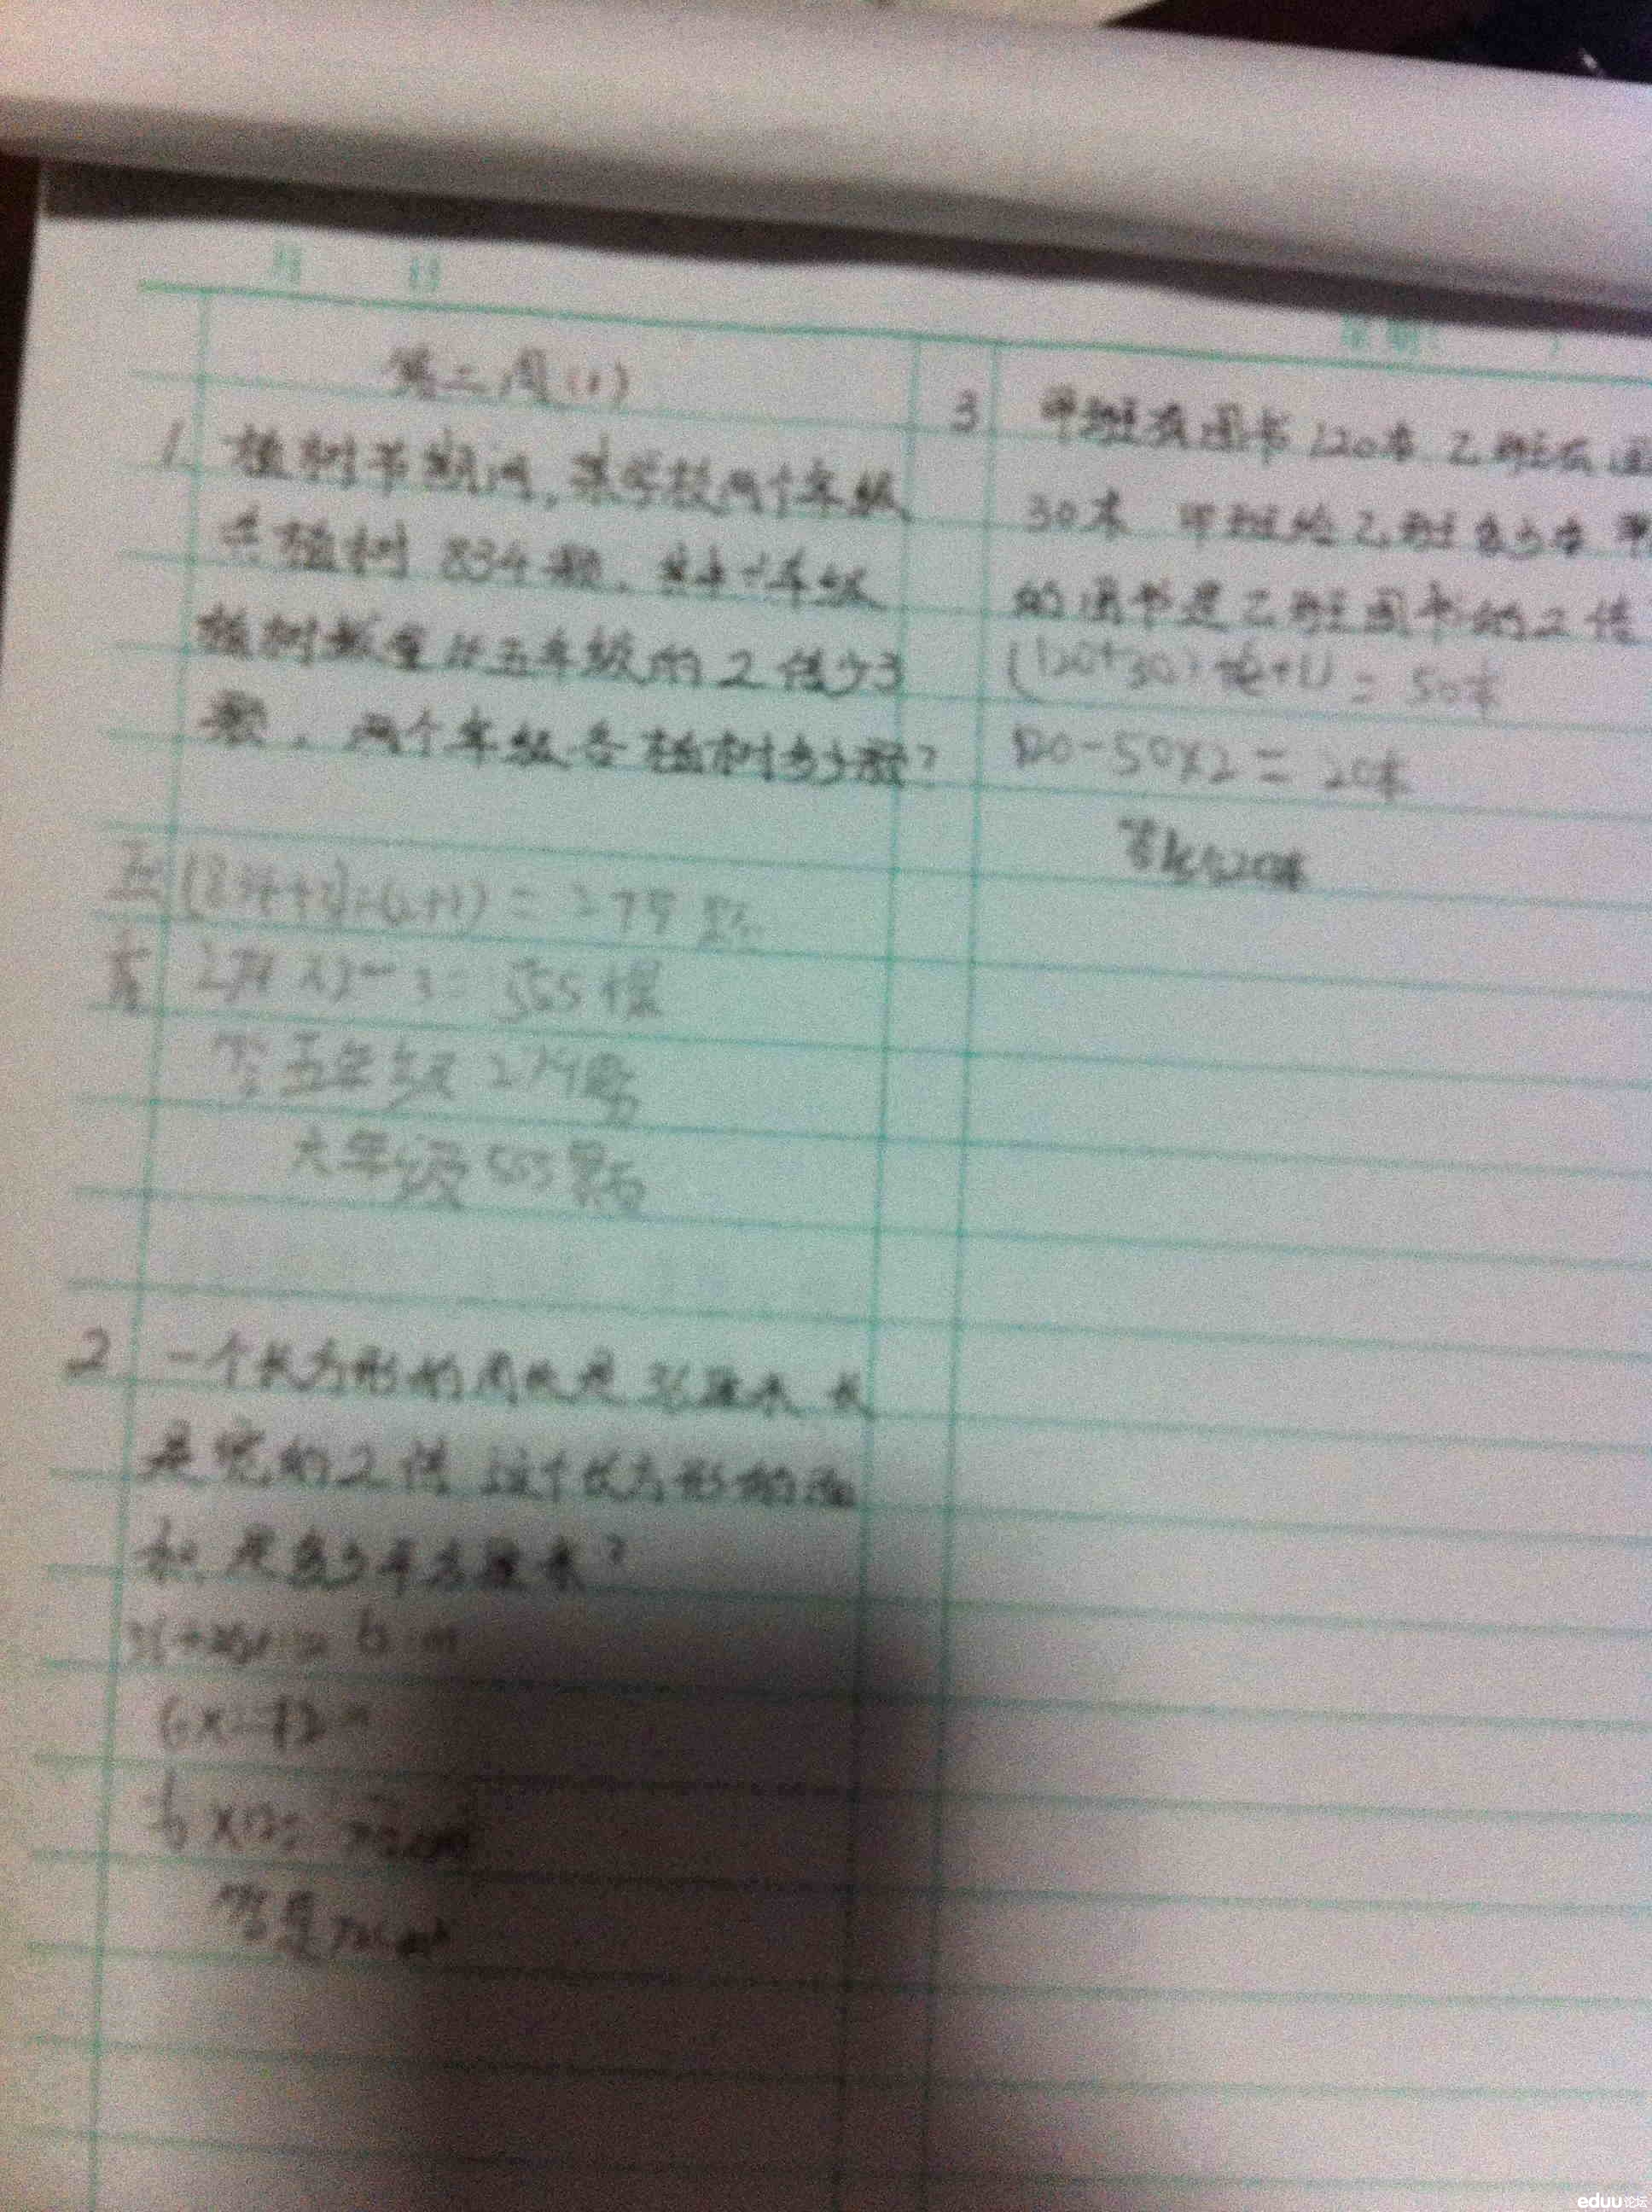 月 日
星期
第二周(1)
1. 植树节期间,某学校两个年级
共植树 834 颗,其中六年级
植树数量比五年级的2倍少3
颗,两个年级各植树多少颗?
五(834+3)÷(2+1) = 279
279×2-3=555棵
答:五年级279颗
六年级555颗
2 一个长方形的周长是36厘米 长
是宽的2倍 这个长方形的面
积是多少平方厘米?
6×2=12
6×12= 72cm²
答是72cm²
3 甲班有图书120本 乙班有图
30本 甲班给乙班多少本 甲
的图书是乙班图书的2倍
(120+30)÷(2+1) = 50本
120-50×2=20本
答:给20本
eduu